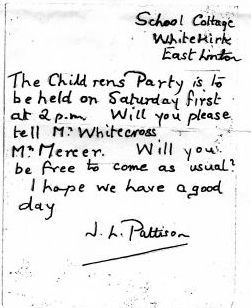 School Cottage
Whitekirk
East Linton
The Childrens Party is to
be held on Saturday first
at 2 p.m. Will you please
tell Mr Whitecross
Mr Mercer. Will you
be free to come as usual?
I hope we have a good
day
J. L. Pattison